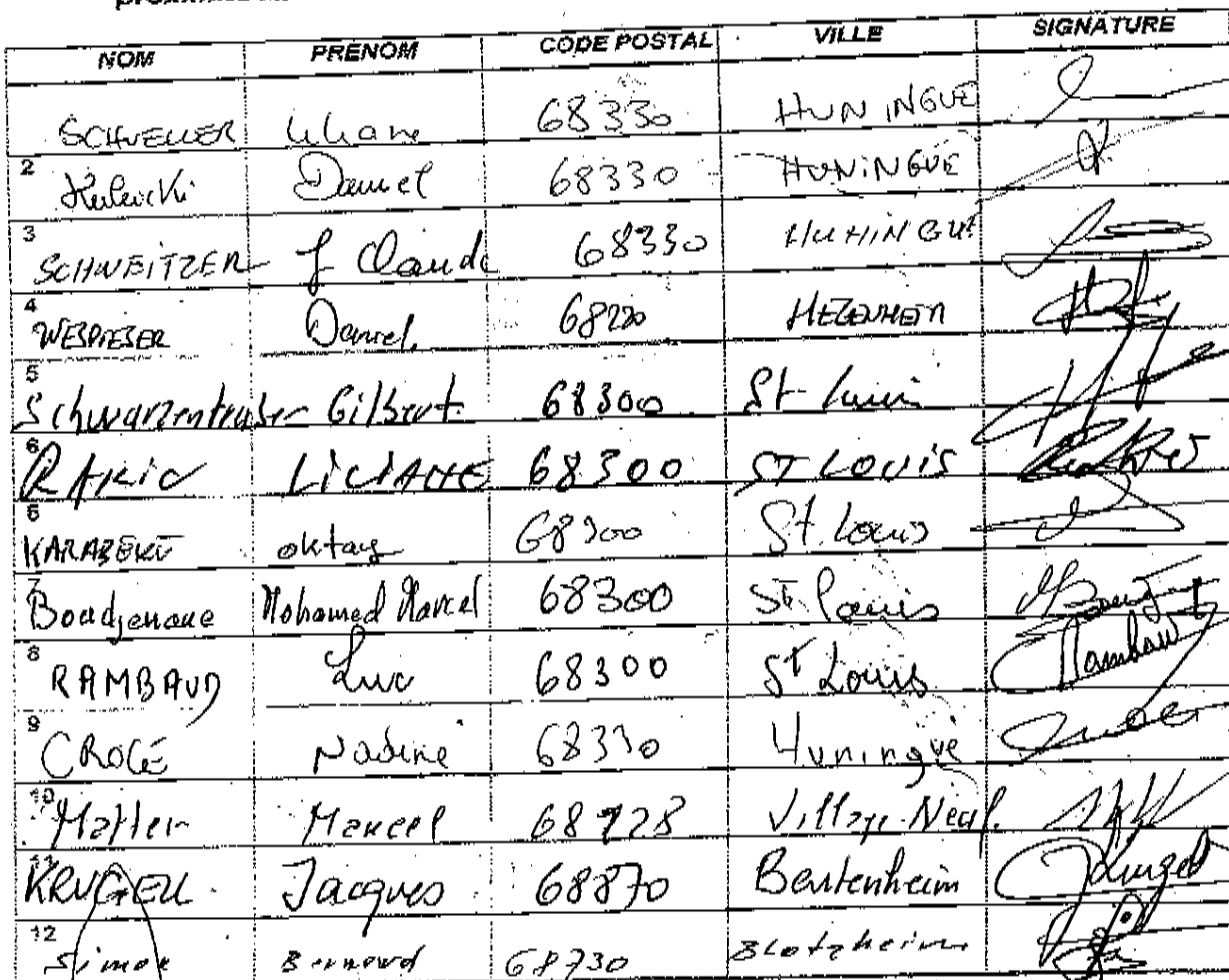 NOM PRÉNOM CODE POSTAL VILLE SIGNATURE
SCHUELLER Liliane 68330 HUNINGUE
2 Daniel 68330 HUNINGUE
3 SCHWEITZER J Claude 68330 HUNINGUE
4 WESPIESER Daniel 68220 HEGENHEIM
5 Schwarzentruber Gilbert 68300 St-Louis
6 RAKIC LILIANE 68300 ST LOUIS
6 oktay 68300 St. Louis
7 Boudjenoue Mohamed Marcel 68300 St. Louis
8 RAMBAUD Luc 68300 St Louis Rambaud
9 CROCÉ Nadine 68330 Huningue
10 Marcel 68128 Village-Neuf.
11 Jacques 68870 Bartenheim
12 Simon Bernard 68730 Blotzheim